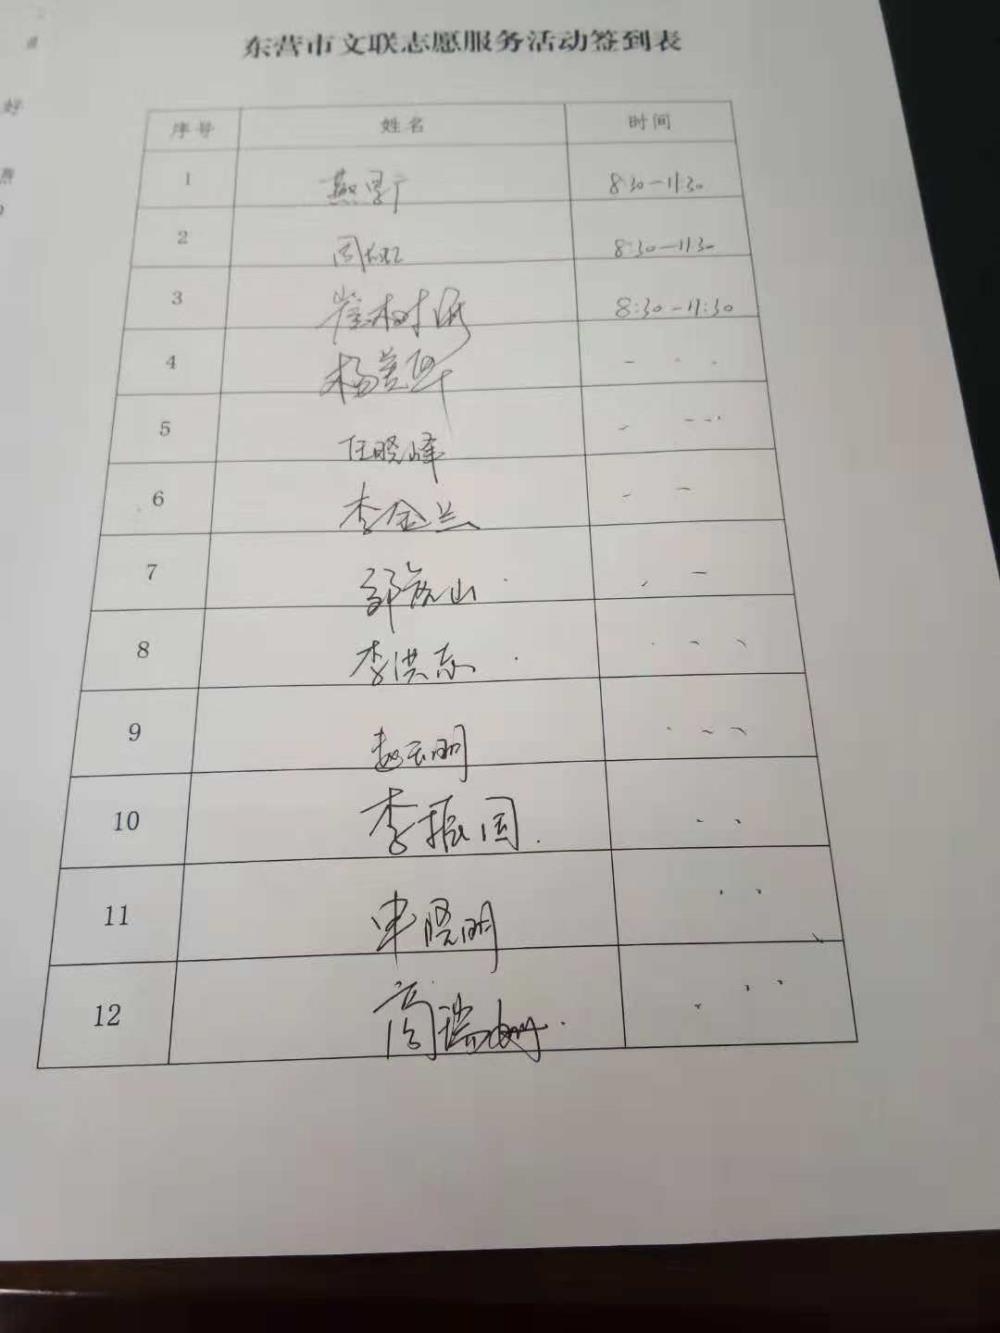 东营市文联志愿服务活动签到表
序号 姓名 时间
1 燕 8:30-11:30
2 周 8:30-11:30
3 崔树 8:30-11:30
4 杨
5 任晓峰
6 李金兰
7 山
8 李洪
9 赵云明
10 李振国.
11 申晓明
12 高瑞
好